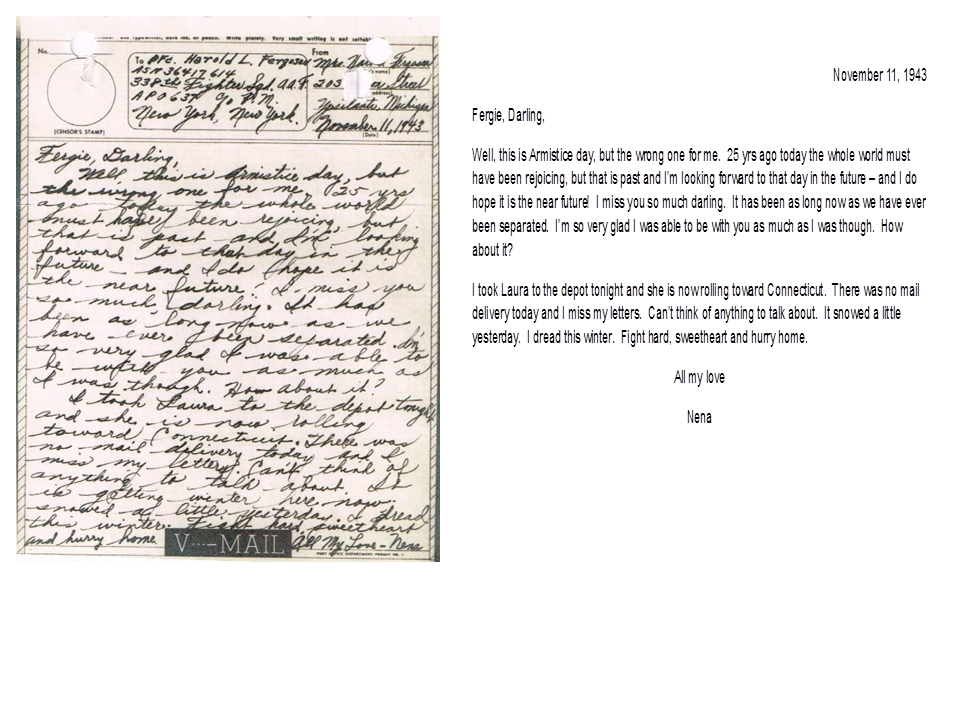 Use typewriter, dark ink, or pencil. Write plainly. Very small writing is not suitable.
No.
(CENSOR'S STAMP)
To Pfc. Harold L. Ferguson
ASN 36417614
338th Fighter Sqd. AAF.
APO 637 c/o P.M.
New York, New York.
From
Mrs. Ferguson
203 Street
Ypsilanti, Michigan
November 11, 1943
(Date)
Fergie, Darling,
Well this is Armistice day, but
the wrong one for me. 25 yrs
ago today the whole world
must have been rejoicing, but
that is past and I'm looking
forward to that day in the
future – and I do hope it is
the near future! I miss you
so much, darling. It has
been as long now as we
have ever been separated. I'm
so very glad I was able to
be with you as much as
I was though. How about it?
I took Laura to the depot tonight
and she is now rolling
toward Connecticut. There was
no mail delivery today and I
miss my letters. Can't think of
anything to talk about. It
is getting winter here now.
snowed a little yesterday. I dread
this winter. Fight hard, sweetheart
and hurry home.
All My Love – Nena
V···–MAIL
November 11, 1943
Fergie, Darling,
Well, this is Armistice day, but the wrong one for me. 25 yrs ago today the whole world must
have been rejoicing, but that is past and I'm looking forward to that day in the future – and I do
hope it is the near future! I miss you so much darling. It has been as long now as we have ever
been separated. I'm so very glad I was able to be with you as much as I was though. How
about it?
I took Laura to the depot tonight and she is now rolling toward Connecticut. There was no mail
delivery today and I miss my letters. Can't think of anything to talk about. It snowed a little
yesterday. I dread this winter. Fight hard, sweetheart and hurry home.
All my love
Nena